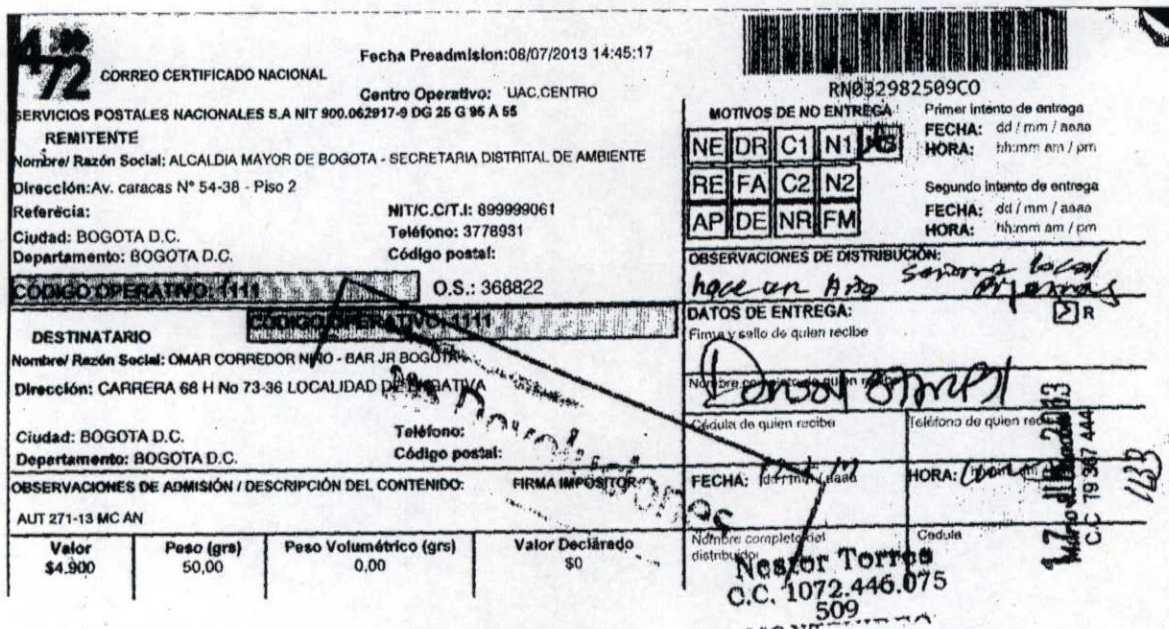 472
CORREO CERTIFICADO NACIONAL
Fecha Preadmision:08/07/2013 14:45:17
Centro Operativo: UAC.CENTRO
SERVICIOS POSTALES NACIONALES S.A NIT 900.062917-9 DG 25 G 95 A 55
REMITENTE
Nombre/ Razón Social: ALCALDIA MAYOR DE BOGOTA - SECRETARIA DISTRITAL DE AMBIENTE
Dirección:Av. caracas N° 54-38 - Piso 2
Referecia:
NIT/C.C/T.I: 899999061
Ciudad: BOGOTA D.C.
Teléfono: 3778931
Departamento: BOGOTA D.C.
Código postal:
CÓDIGO OPERATIVO: 1111
O.S.: 368822
DESTINATARIO
CÓDIGO OPERATIVO: 1111
Nombre/ Razón Social: OMAR CORREDOR NIÑO - BAR JR BOGOTA
Dirección: CARRERA 68 H No 73-36 LOCALIDAD DE ENGATIVA
Ciudad: BOGOTA D.C.
Teléfono:
Departamento: BOGOTA D.C.
Código postal:
OBSERVACIONES DE ADMISIÓN / DESCRIPCIÓN DEL CONTENIDO:
FIRMA IMPOSITOR
AUT 271-13 MC AN
Valor Peso (grs) Peso Volumétrico (grs) Valor Declarado
$4.900 50,00 0,00 $0
RN032982509CO
MOTIVOS DE NO ENTREGA
NE DR C1 N1
RE FA C2 N2
AP DE NR FM
Primer intento de entrega
FECHA: dd / mm / aaaa
HORA: hh:mm am / pm
Segundo intento de entrega
FECHA: dd / mm / aaaa
HORA: hh:mm am / pm
OBSERVACIONES DE DISTRIBUCIÓN:
local
hace un Año
DATOS DE ENTREGA:
R
Firma y sello de quien recibe
Nombre completo de quien recibe
Cédula de quien recibe
Teléfono de quien
FECHA: dd / mm / aaaa
HORA:
Nombre completo del distribuidor
Cedula
Nestor Torres
C.C. 1072.446.075
509
2013
C.C 79 367 444
1133